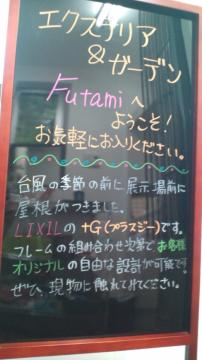 エクステリア
&ガーデン
Futamiへ
ようこそ!
お気軽にお入りください。
台風の季節の前に展示場前に
屋根がつきました。
LIXILの +G(プラスジー)です。
フレームの組み合わせ次第でお客様
オリジナルの自由な設計が可能です。
ぜひ、現物に触れてみてください。